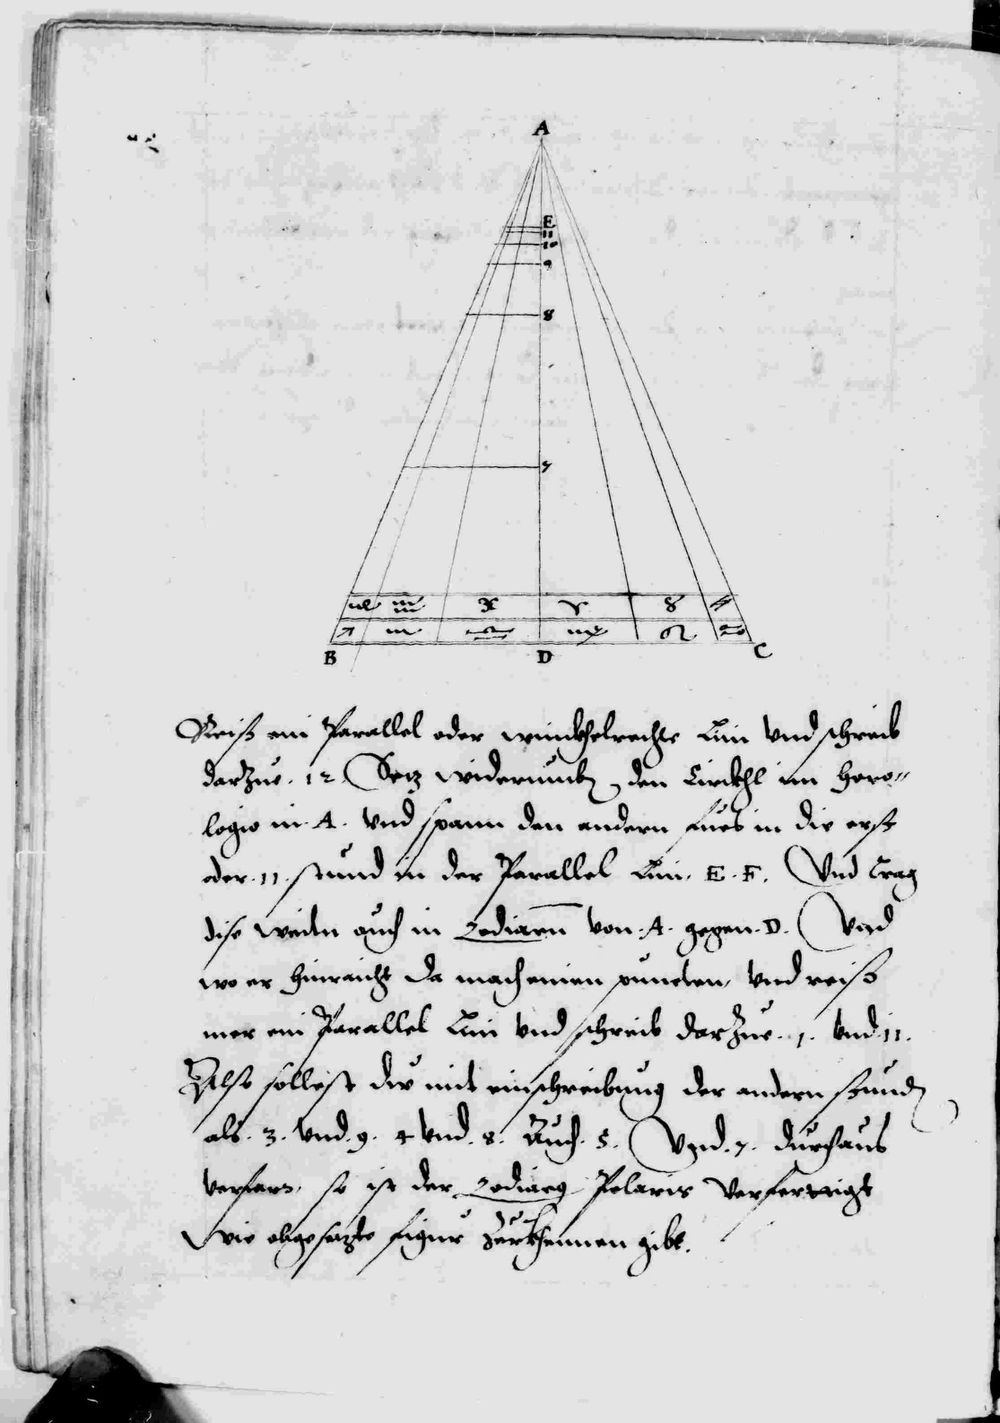 A
E
11
10
9
8
7
♑ ♒ ♓ ♈ ♉ ♊
♐ ♏ ♎ ♍ ♌ ♋
B D C
Reiß ein Parallel oder winckhelrechte Lini Vnd schreib
darzue . 12 . Setz widerumb den Circkhl im Horo-
logio in . A . Vnd spann den andern fues in die erst
oder . 11 . stund in der Parallel Lini . E . F . Vnd trag
dise weiten auch in Zodiacu von . A . gegen . D . Vnd
wo er hinraicht da mach einen puncten, Vnd reiß
mer ein Parallel Lini Vnd schreib darzue . 1 . Vnd 11 .
Also sollest du mit einschreibung der andern stund
als . 3 . Vnd . 9 . 4 Vnd . 8 . Auch . 5 . Vnd . 7 . durchaus
verfarn, so ist der Zodiacg Polaris Verferttigt
Wie obgesatzte figur Zuerkhennen gibt .